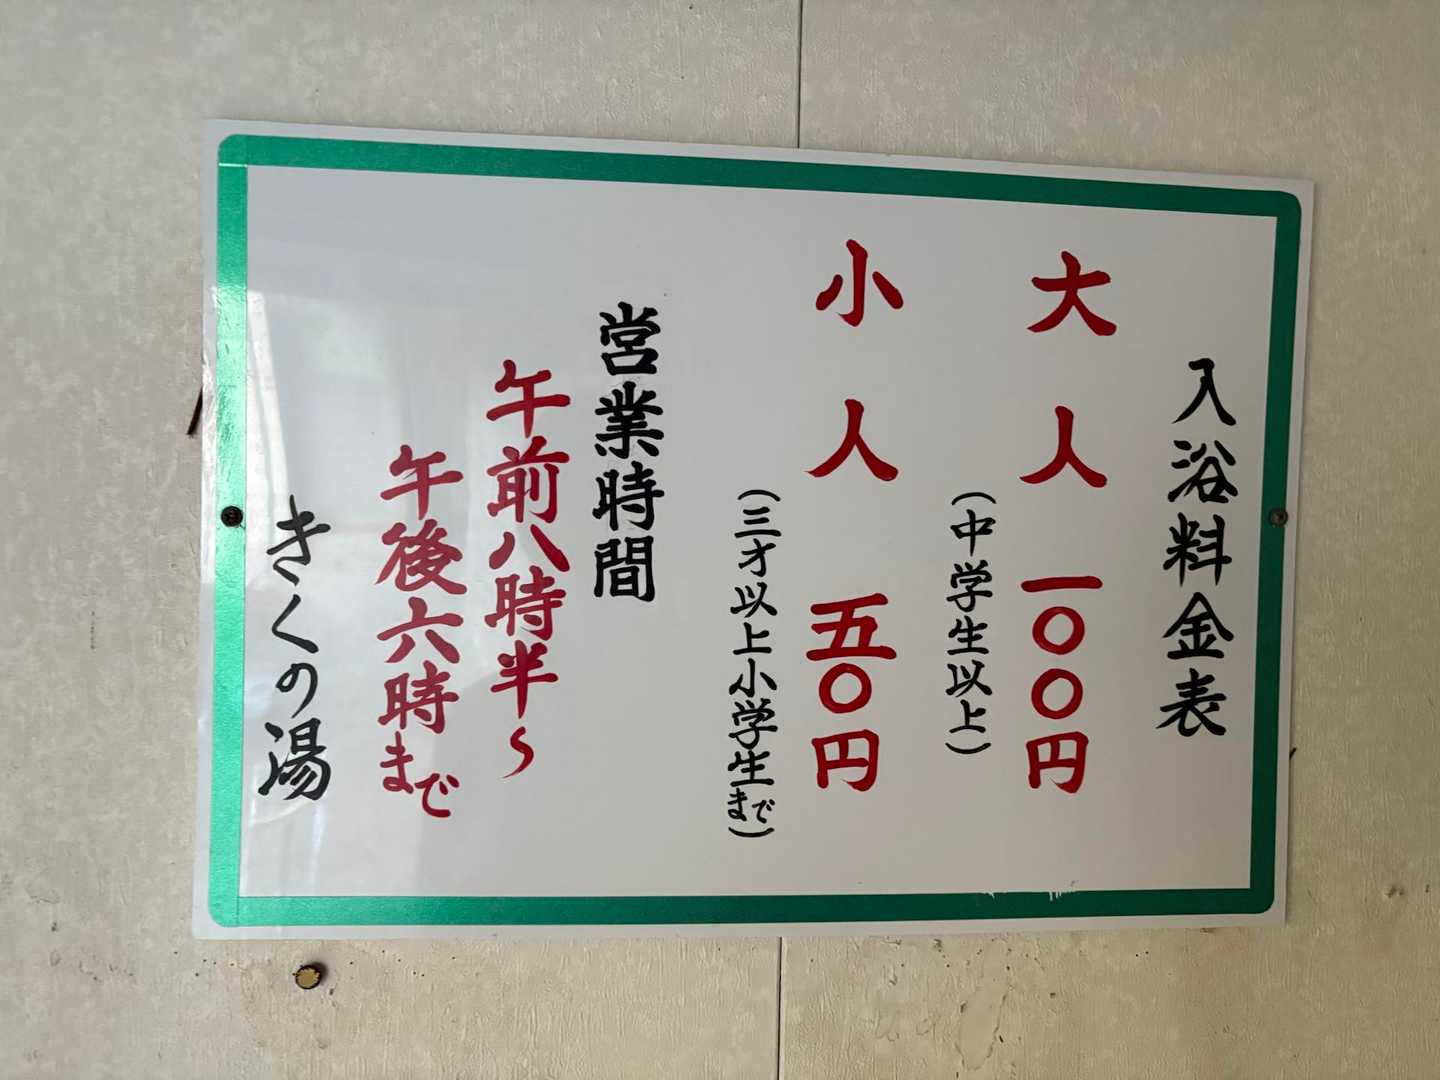 入浴料金表
大人 一〇〇円
(中学生以上)
小人 五〇円
(三才以上小学生まで)
営業時間
午前八時半〜
午後六時まで
きくの湯